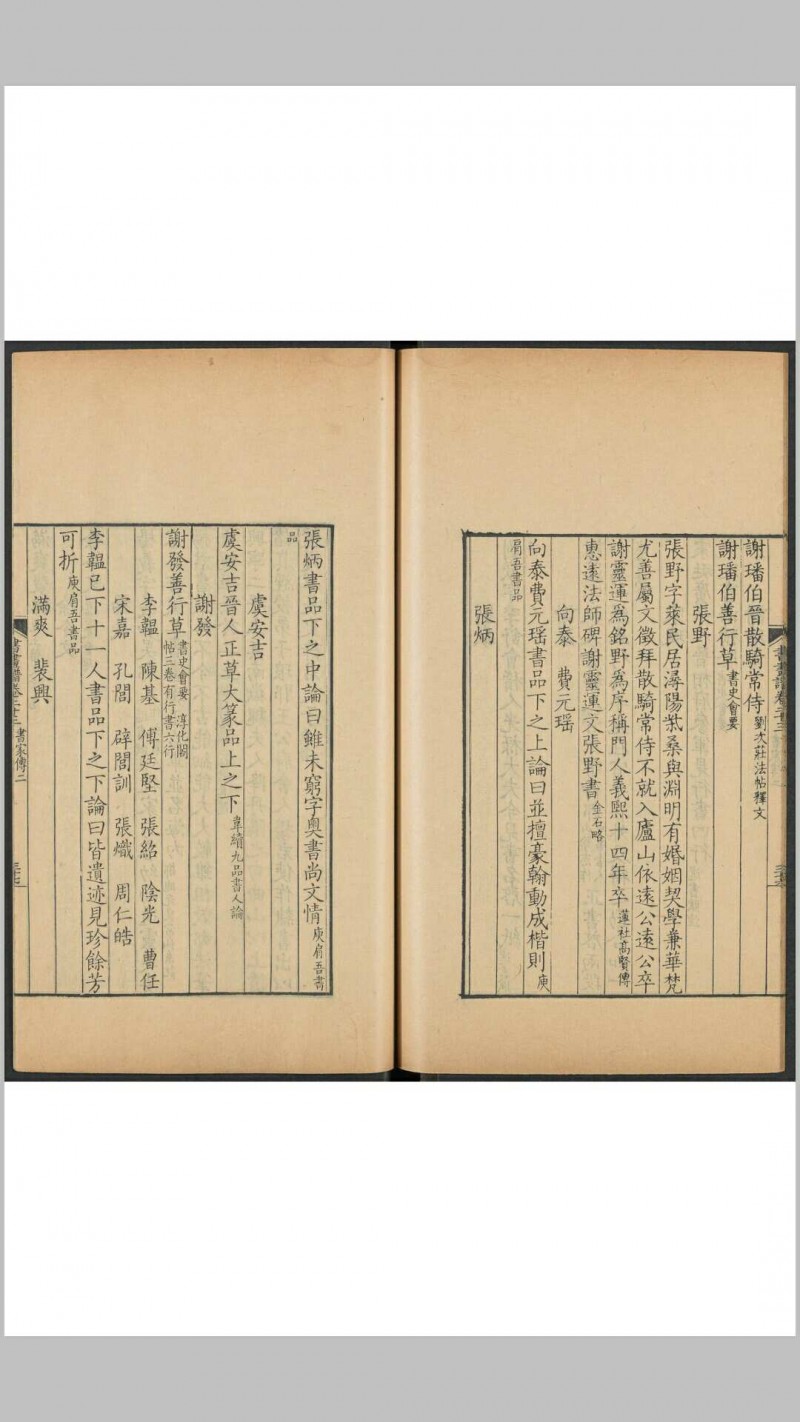 謝璠伯晉散騎常侍劉次莊法帖釋文
謝璠伯善行草書史會要
張野
張野字萊民居潯陽柴桑與淵明有婚姻契學兼華梵
尤善屬文徵拜散騎常侍不就入廬山依遠公遠公卒
謝靈運為銘野為序稱門人義熙十四年卒蓮社高賢傳
惠遠法師碑謝靈運文張野書金石略
向泰 費元瑶
向泰費元瑶書品下之上論曰並擅豪翰動成楷則庾
肩吾書品
張炳
張炳書品下之中論曰雖未窮字奥書尚文情庾肩吾書
品
虞安吉
虞安吉晉人正草大篆品上之下韋續九品書人論
謝發
謝發善行草書史會要 淳化閣
帖三卷有行書六行
李韞 陳基 傅廷堅 張紹 陰光 曹任
宋嘉 孔閭 辟閭訓 張熾 周仁皓
李韞已下十一人書品下之下論曰皆遺迹見珍餘芳
可折庾肩吾書品
滿爽 裴興
書畫譜卷二十三 書家傳二